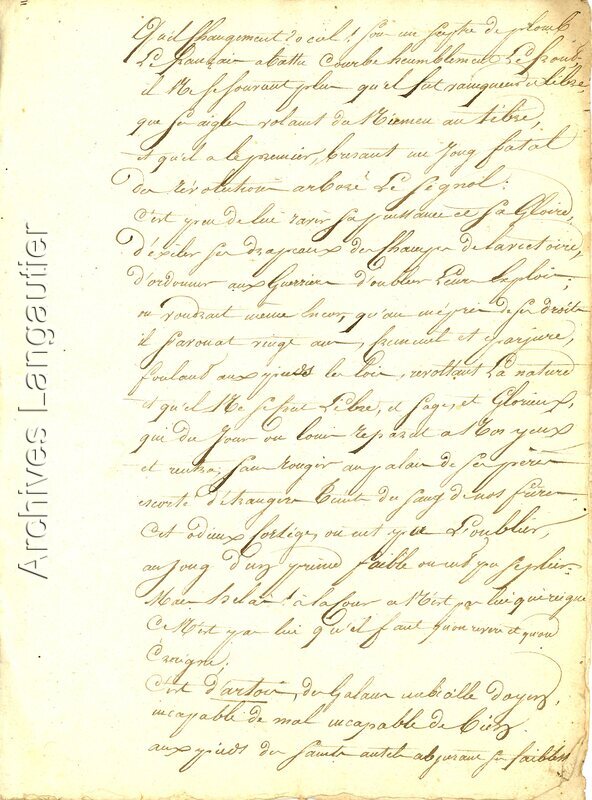 Quel changement o ciel! sou un septre de plomb
Le français abattu courbe humblement Le front
il Ne se souvient plus qu'il fut vainqueur et Libre,
que ses aigles volaient du Niemen au tibre,
et qu'il a le premier, brisant un joug fatal
des révolutions arboré Le signal:
C'est peu de lui ravir sa puissance et sa Gloire,
D'exiler ses drapeaux des champs de la victoire,
D'ordonner aux Guerriers d'oublier Leurs Exploits,
on voudrait même Encor, qu'au mépris de ses droits
il s'avouat vingt ans, criminel et parjure,
foulant aux pieds les loix, revoltant La nature
et qu'il Ne se crut Libre, et sage, et Glorieux,
qui du Jour ou louis reparut a Nos yeux
et rentra, sans rougir au palais de ses pères
escorté d'étrangers teints du sang de nos frères
Cet odieux Cortége, on eut pu L'oublier,
au joug d'un prince faible on eut pu se plier
Mais helas! à la Cour ce N'est pas lui qui règne
Ce N'est pas lui qu'il faut qu'on revere et qu'on
Craigne;
C'est d'artois, des Galans imbécille doyen,
incapable de mal incapable de bien,
aux pieds des saints autels abjurant ses faibles
Archives Langautier